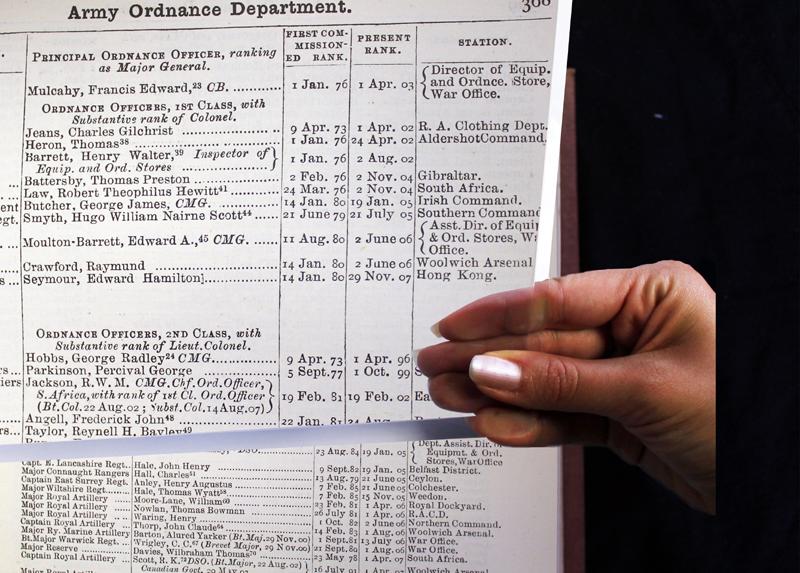 Army Ordnance Department.
FIRST COM-
MISSION-
ED RANK.
PRESENT
RANK.
STATION.
PRINCIPAL ORDNANCE OFFICER, ranking
as Major General.
Mulcahy, Francis Edward,²³ CB. ............ 1 Jan. 76 1 Apr. 03 Director of Equip.
and Ordnce. Store,
War Office.
ORDNANCE OFFICERS, 1ST CLASS, with
Substantive rank of Colonel.
Jeans, Charles Gilchrist ............ 9 Apr. 73 1 Apr. 02 R. A. Clothing Dept.
Heron, Thomas³⁸ ............ 1 Jan. 76 24 Apr. 02 Aldershot Command,
Barrett, Henry Walter,³⁹ Inspector of
Equip. and Ord. Stores ............ 1 Jan. 76 2 Aug. 02
Battersby, Thomas Preston ............ 2 Feb. 76 2 Nov. 04 Gibraltar.
Law, Robert Theophilus Hewitt⁴¹ ...... 24 Mar. 76 2 Nov. 04 South Africa.
Butcher, George James, CMG. ............ 14 Jan. 80 19 Jan. 05 Irish Command.
Smyth, Hugo William Nairne Scott⁴⁴ ...... 21 June 79 21 July 05 Southern Command
Moulton-Barrett, Edward A.,⁴⁵ CMG. ...... 11 Aug. 80 2 June 06 Asst. Dir. of Equip
& Ord. Stores, W
Office.
Crawford, Raymund ............ 14 Jan. 80 2 June 06 Woolwich Arsenal
Seymour, Edward Hamilton ............ 14 Jan. 80 29 Nov. 07 Hong Kong.
ORDNANCE OFFICERS, 2ND CLASS, with
Substantive rank of Lieut. Colonel.
Hobbs, George Radley²⁴ CMG. ............ 9 Apr. 73 1 Apr. 96
Parkinson, Percival George ............ 5 Sept. 77 1 Oct. 99 S
Jackson, R. W. M. CMG. Chf. Ord. Officer,
S. Africa, with rank of 1st Cl. Ord. Officer
(Bt. Col. 22 Aug. 02; Subst. Col. 14 Aug. 07) 19 Feb. 81 19 Feb. 02 Ea
Angell, Frederick John⁴⁸ ............ 22 Jan. 81
Taylor, Reynell H. Bayley⁴⁹
DSO. ............ 23 Aug. 84 19 Jan. 05 Dept. Assist. Dir. of
Equipmt. & Ord.
Stores, War Office
Capt. E. Lancashire Regt. Hale, John Henry ............ 9 Sept. 82 19 Jan. 05 Belfast District.
Major Connaught Rangers Hall, Charles ............ 13 Aug. 79 21 June 05 Ceylon.
Captain East Surrey Regt. Anley, Henry Augustus ............ 7 Feb. 85 21 June 05 Colchester.
Major Wiltshire Regt. Hale, Thomas Wyatt ............ 7 Feb. 85 15 Nov. 05 Weedon.
Major Royal Artillery Moore-Lane, William ............ 23 Feb. 81 1 Apr. 06 Royal Dockyard.
Major Royal Artillery Nowlan, Thomas Bowman ............ 26 July 81 1 Apr. 06 R.A.C.D.
Major Royal Artillery Waring, Henry ............ 1 Oct. 82 2 June 06 Northern Command.
Captain Royal Artillery Thorp, John Claude ............ 14 Feb. 83 1 Aug. 06 Woolwich Arsenal.
Major Ry. Marine Artillery Barton, Alured Yarker (Bt. Maj. 29 Nov. 00) 1 Sept. 81 13 July 06 War Office.
Bt. Major Warwick Regt. Wrigley, C. C. (Brevet Major, 29 Nov. 00) 21 Sept. 80 1 Aug. 06 War Office.
Major Reserve Davies, Wilbraham Thomas ............ 23 May 78 1 Apr. 07 South Africa.
Captain Royal Artillery Scott, R. K. DSO. (Bt. Major, 22 Aug. 02)
Canadian Govt. 16 July 1 Apr. Woolwich Arsenal
Major Royal Artillery